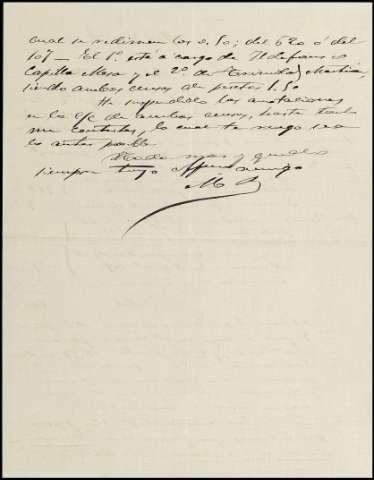 cual se redimen los 1.50; del 520 ó del
107 — El 1º está a cargo de Ildefonso
Capilla Mesa y el 2º de Fernando Martín,
siendo ambos censos de pesetas 1.50
He suspendido las anotaciones
en la c/c de ambos censos, hasta tanto
me contestes, lo cual te ruego sea
lo antes posible
Nada mas y quedo
siempre tuyo affmo amigo
M